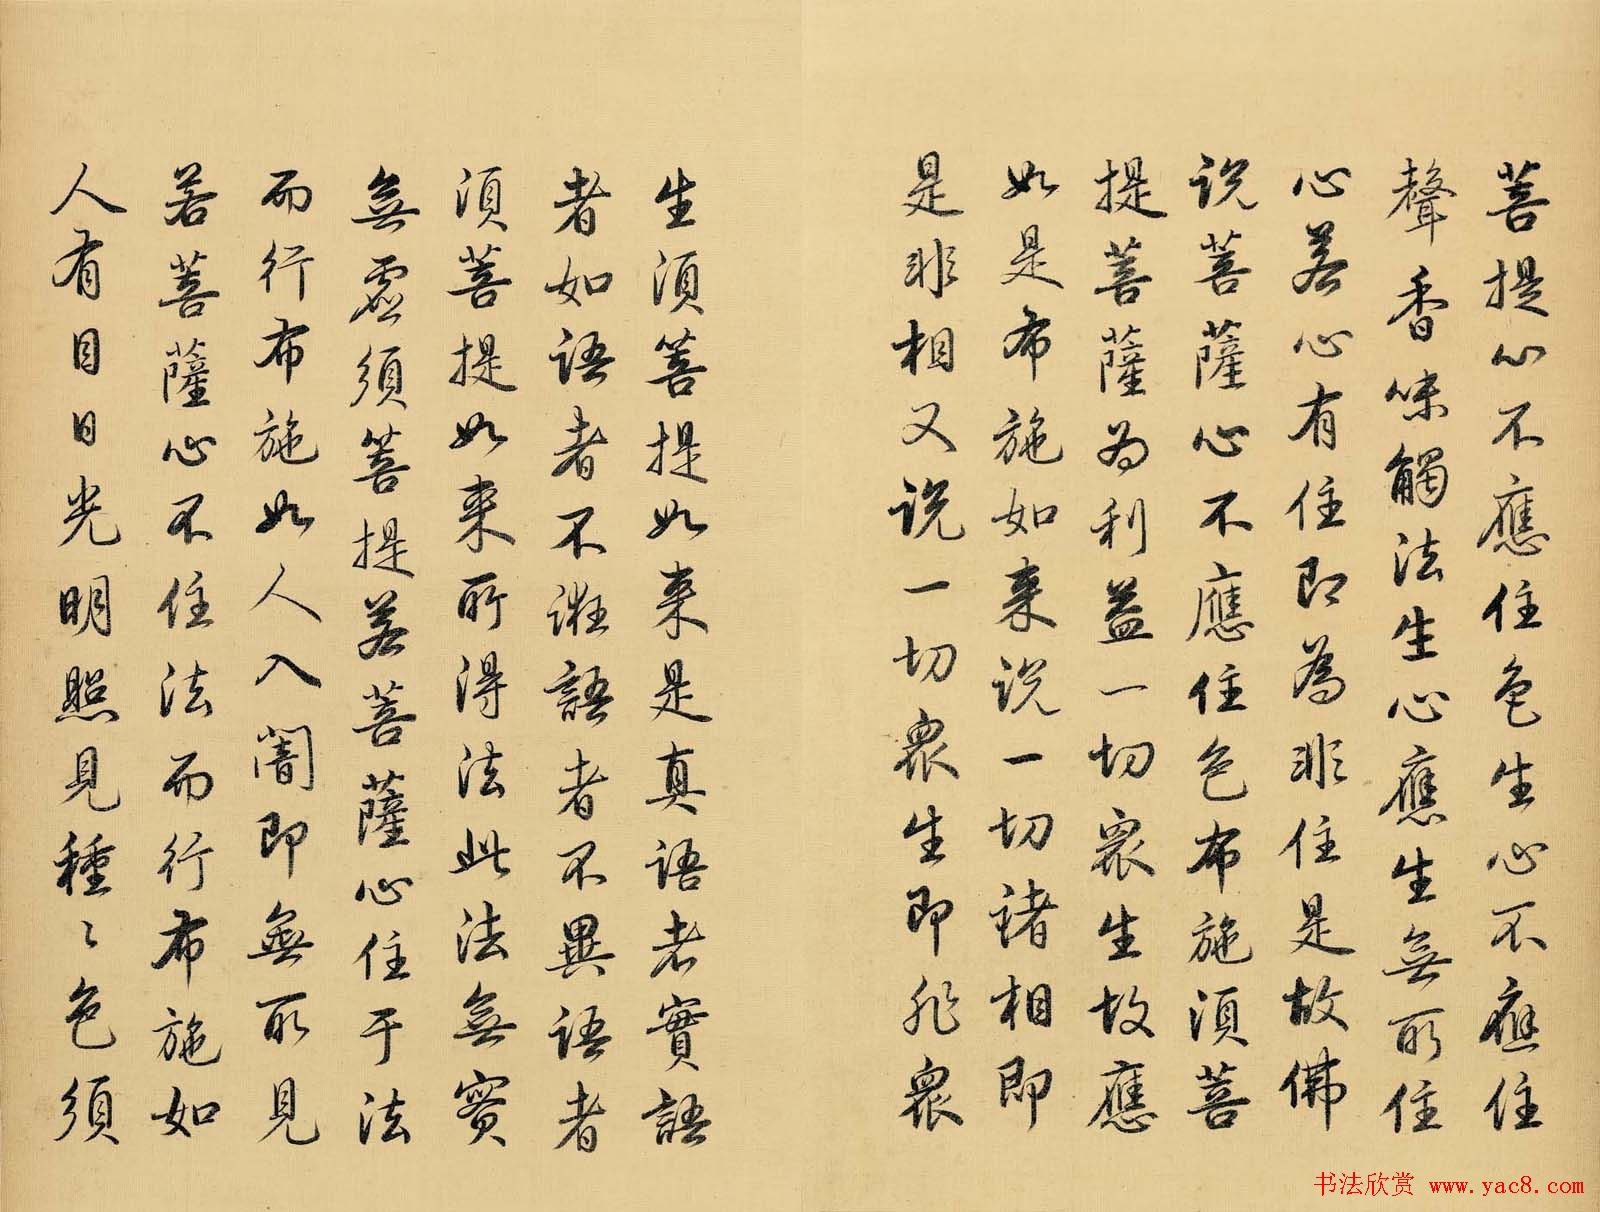 菩提心不應住色生心不應住
聲香味觸法生心應生無所住
心若心有住即為非住是故佛
说菩薩心不應住色布施須菩
提菩薩为利益一切衆生故應
如是布施如来说一切諸相即
是非相又说一切衆生即非衆
生須菩提如来是真語者實語
者如語者不誑語者不異語者
須菩提如来所得法此法無實
無虛須菩提若菩薩心住于法
而行布施如人入闇即無所見
若菩薩心不住法而行布施如
人有目日光明照見種〻色須
书法欣赏 www.yac8.com